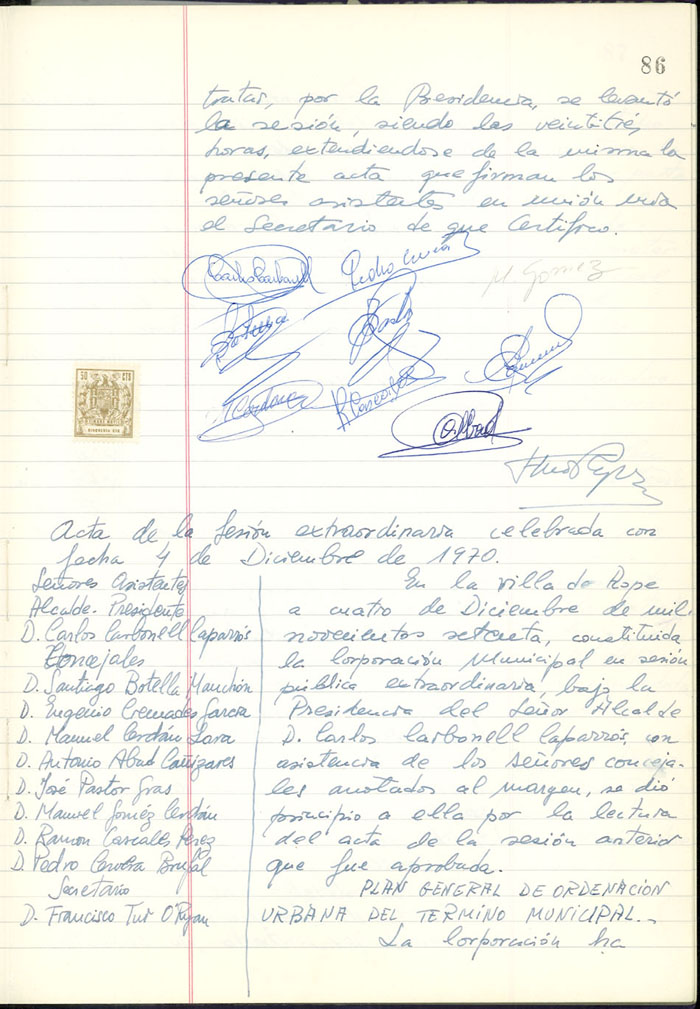 86
tratar, por la Presidencia, se levantó
la sesión, siendo las veintitrés
horas, extendiendose de la misma la
presente acta que firman los
señores asistentes en unión
el Secretario de que Certifico.
Carlos Carbonell
Pedro
M. Gomez
Botella
Pastor
Cardona
R Cascales
A. Abad
50 CTS
Acta de la Sesión extraordinaria celebrada con
fecha 4 de Diciembre de 1970.
Señores Asistentes
Alcalde-Presidente
D. Carlos Carbonell Caparrós
Concejales
D. Santiago Botella Manchón
D. Eugenio Cremades Garcia
D. Manuel Cerdán Lara
D. Antonio Abad Cañizares
D. José Pastor Gras
D. Manuel Goméz Cerdán
D. Ramon Cascales Pérez
D. Pedro Cervera Brufal
Secretario
D. Francisco Tur O'Ryan
En la villa de Aspe
a cuatro de Diciembre de mil
novecientos setenta, constituida
la Corporación Municipal en sesión
pública extraordinaria, bajo la
Presidencia del Señor Alcalde
D. Carlos Carbonell Caparrós, con
asistencia de los señores conceja-
les anotados al margen, se dió
principio a ella por la lectura
del acta de la sesión anterior
que fue aprobada.
PLAN GENERAL DE ORDENACION
URBANA DEL TERMINO MUNICIPAL.-
La Corporación ha